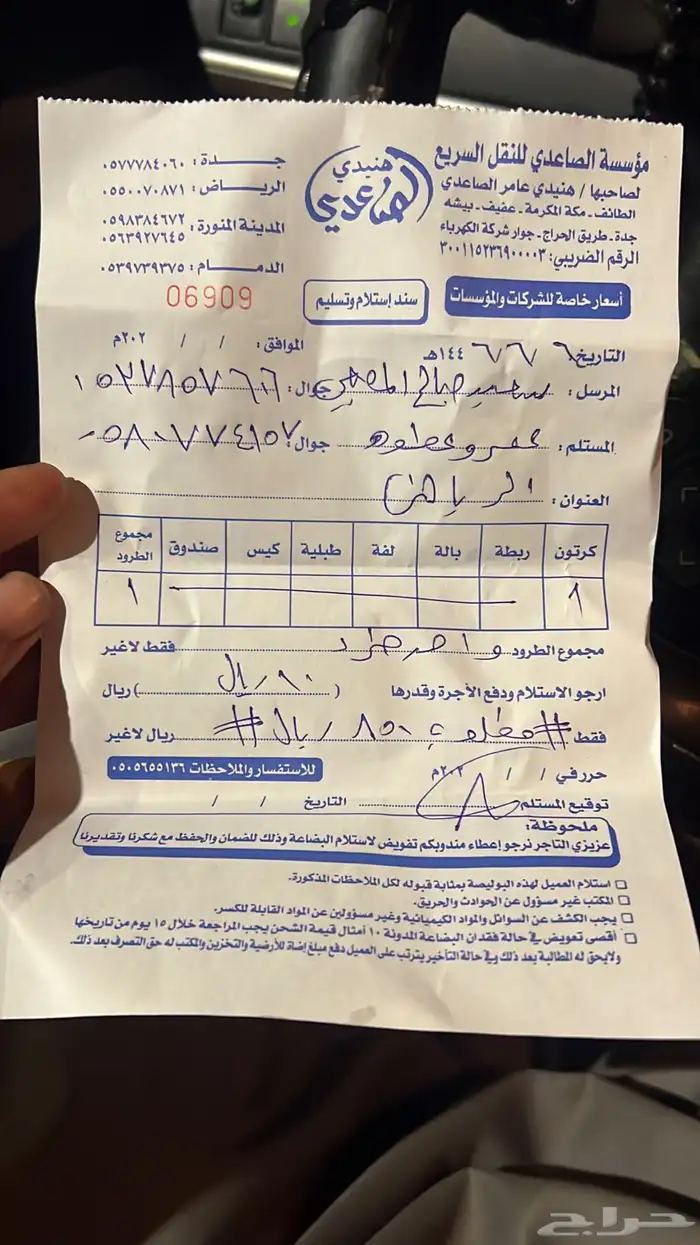 مؤسسة الصاعدي للنقل السريع
لصاحبها / هنيدي عامر الصاعدي
الطائف - مكة المكرمة - عفيف - بيشه
جدة - طريق الحراج - جوار شركة الكهرباء
الرقم الضريبي: ٣٠٠١١٥٢٣٦٩٠٠٠٠٣
هنيدي
الصاعدي
جـــدة : ٠٥٧٧٧٨٤٠٦٠
الرياض : ٠٥٥٠٠٧٠٨٧١
المدينة المنورة : ٠٥٩٨٣٨٤٦٧٢
٠٥٦٣٩٢٧٦٤٥
الدمـــام : ٠٥٣٩٧٣٩٣٧٥
06909
أسعار خاصة للشركات والمؤسسات
سند إستلام وتسليم
التاريخ ٦ / ٦ / ١٤٤٦هـ الموافق : / / ٢٠٢م
المرسل : سعيد صالح جوال :
المستلم : عمرو جوال : ٠٥٨٠٧٧٤١٥٧
العنوان : الرياض
كرتون ربطة بالة لفة طبلية كيس صندوق مجموع الطرود
١ ١
مجموع الطرود واحد طرد فقط لاغير
ارجو الاستلام ودفع الأجرة وقدرها ( ٩٠ ريال ) ريال
فقط # ٨٥٠ ريال # ريال لاغير
حرر في / / ٢٠٢م
للاستفسار والملاحظات ٠٥٠٥٦٥٥١٣٦
توقيع المستلم التاريخ / /
ملحوظة :
عزيزي التاجر نرجو إعطاء مندوبكم تفويض لاستلام البضاعة وذلك للضمان والحفظ مع شكرنا وتقديرنا
استلام العميل لهذه البوليصة بمثابة قبوله لكل الملاحظات المذكورة.
المكتب غير مسؤول عن الحوادث والحريق.
يجب الكشف عن السوائل والمواد الكيميائية وغير مسؤولين عن المواد القابلة للكسر.
أقصى تعويض في حالة فقدان البضاعة المدونة ١٠ أمثال قيمة الشحن يجب المراجعة خلال ١٥ يوم من تاريخها
ولايحق له المطالبة بعد ذلك وفي حالة التأخير يترتب على العميل دفع مبلغ إضافة للأرضية والتخزين والمكتب له حق التصرف بعد ذلك.
حراج